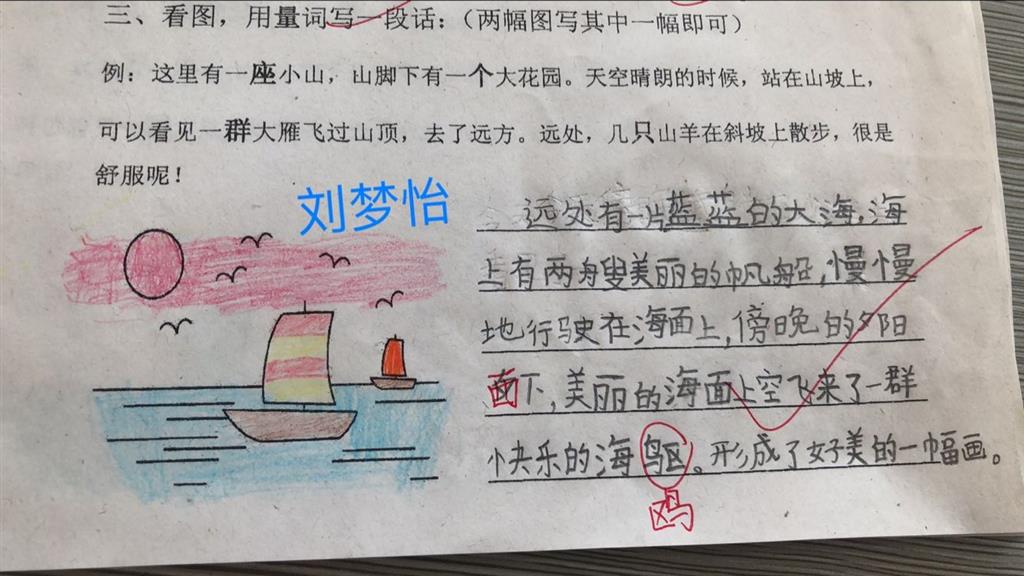 三、看图，用量词写一段话：（两幅图写其中一幅即可）
例：这里有一座小山，山脚下有一个大花园。天空晴朗的时候，站在山坡上，
可以看见一群大雁飞过山顶，去了远方。远处，几只山羊在斜坡上散步，很是
舒服呢！
刘梦怡
远处有一片蓝蓝的大海，海
上有两艘美丽的帆船，慢慢
地行驶在海面上，傍晚的夕阳
下，美丽的海面上空飞来了一群
快乐的海鸥。形成了好美的一幅画。
鸥